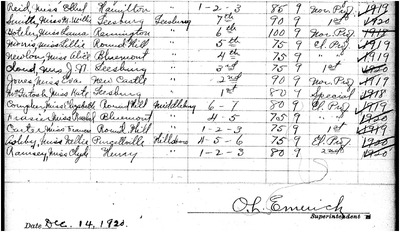 Reid, Miss Ethel Hamilton " 1-2-3 85 9 Nor. Prof. 1919
Smith, Miss M. Leesburg Leesburg 7th 90 9 1st 1920
Miss Remington " 6th 100 9 Nor. Prof. 1918
Morris, Miss Lillie Round Hill " 5th 75 9 El. Prof. 1919
Miss Bluemont " 4th 75 9 " 1919
Leesburg " 3rd 75 9 1st 1920
Jones, Miss Eva New Castle " 2nd 90 9 Nor. Prof. 1919
Miss Kate Leesburg " 1st 80 9 Special 1918
Miss Elizabeth Round Hill 6-7 80 9 El. Prof. 1919
Miss Bluemont " 4-5 75 9 " 1920
Carter, Miss Frances Round Hill " 1-2-3 75 9 1st 1919
Ashby, Miss Nellie Purcellville Hillsboro 4-5-6 75 9 El. Prof. 1920
Ramsey, Miss Clyde Henry " 1-2-3 80 9 2nd 1920
O. L. Emerick
Superintendent
Date Dec. 14, 1920.